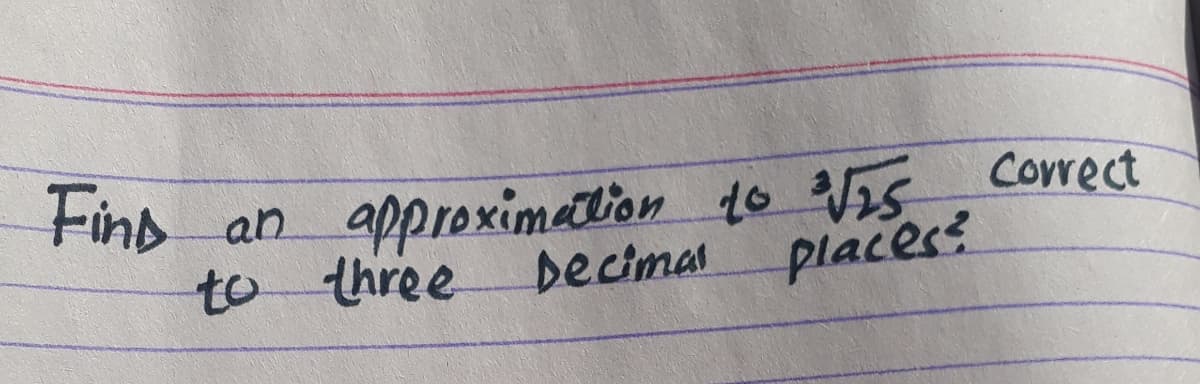 Find an approximation to ∛25 Correct
to three Decimal places?